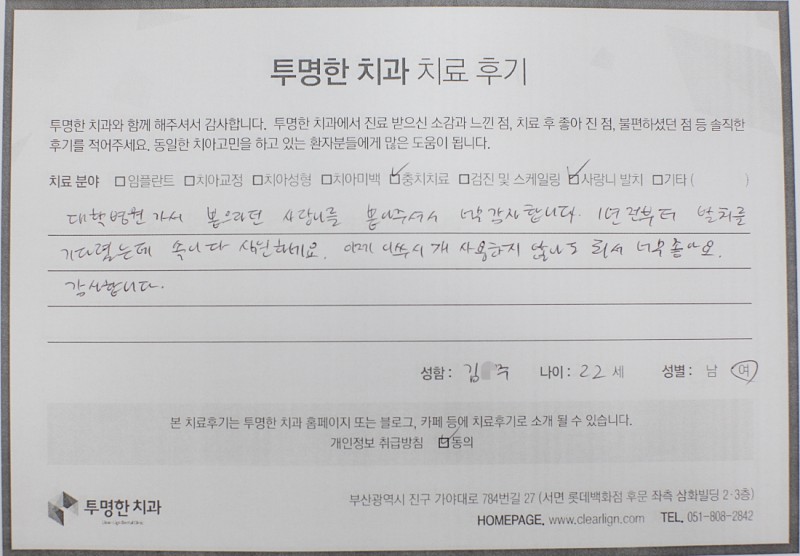 투명한 치과 치료 후기
투명한 치과와 함께 해주셔서 감사합니다. 투명한 치과에서 진료 받으신 소감과 느낀 점, 치료 후 좋아 진 점, 불편하셨던 점 등 솔직한
후기를 적어주세요. 동일한 치아고민을 하고 있는 환자분들에게 많은 도움이 됩니다.
치료 분야 □임플란트 □치아교정 □치아성형 □치아미백 ☑충치치료 □검진 및 스케일링 ☑사랑니 발치 □기타 ( )
대학병원 가서 뽑으라던 사랑니를 뽑아주셔서 너무 감사합니다. 1년 전부터 발치를
기다렸는데 속이 다 시원하네요. 이제 이쑤시개 사용하지 않아도 되서 너무 좋아요.
감사합니다.
성함 : 김 주 나이 : 22 세 성별 : 남 여
본 치료후기는 투명한 치과 홈페이지 또는 블로그, 카페 등에 치료후기로 소개 될 수 있습니다.
개인정보 취급방침 ☑동의
투명한 치과
부산광역시 진구 가야대로 784번길 27 (서면 롯데백화점 후문 좌측 삼화빌딩 2·3층)
HOMEPAGE. www.clearlign.com TEL. 051-808-2842